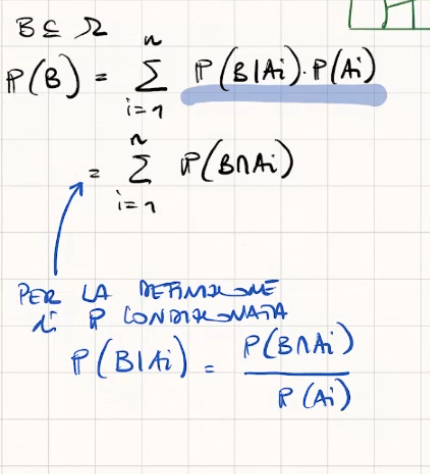 B ⊆ Ω
P(B) = ∑ᵢ₌₁ⁿ P(B|Ai)·P(Ai)
= ∑ᵢ₌₁ⁿ P(B∩Ai)
PER LA DEFINIZIONE
di P CONDIZIONATA
P(B|Ai) = P(B∩Ai) / P(Ai)